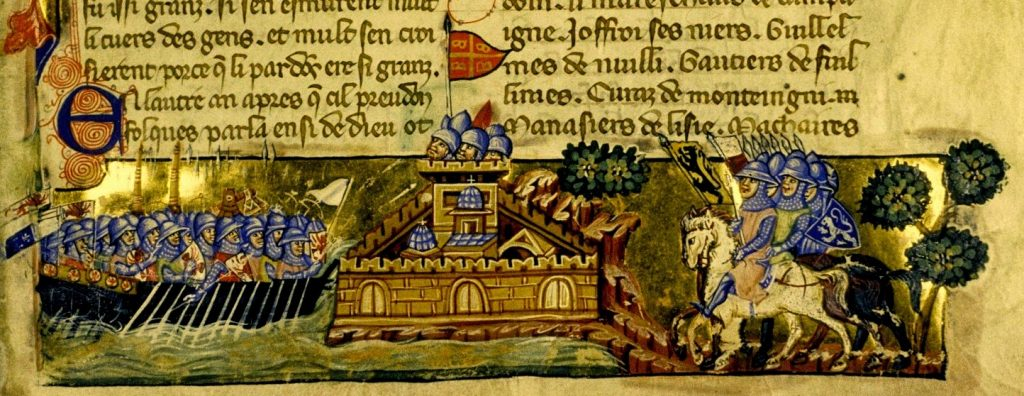 fu issi granz. si sen esmurent mult
li cuers des gens. et mult sen croi
sierent porce q̃ li pardõs ere si granz.
En lautre an apres q̃ cil preudom
folques parla ensi de dieu ot
doin. li mareschaus de campa
igne. Joffroi ses niers. Guillel
mes de nuilli. Gautiers de fuil
limes. Euraz de monteingni.
Manasiers de lisle. Machaires